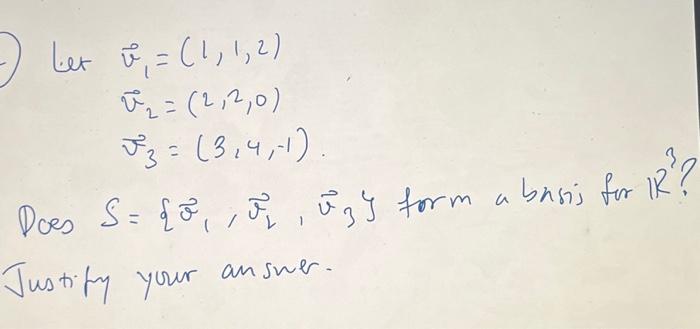 Let v⃗₁ = (1, 1, 2)
v⃗₂ = (2, 2, 0)
v⃗₃ = (3, 4, -1).
Does S = {v⃗₁, v⃗₂, v⃗₃} form a basis for ℝ³?
Justify your answer.